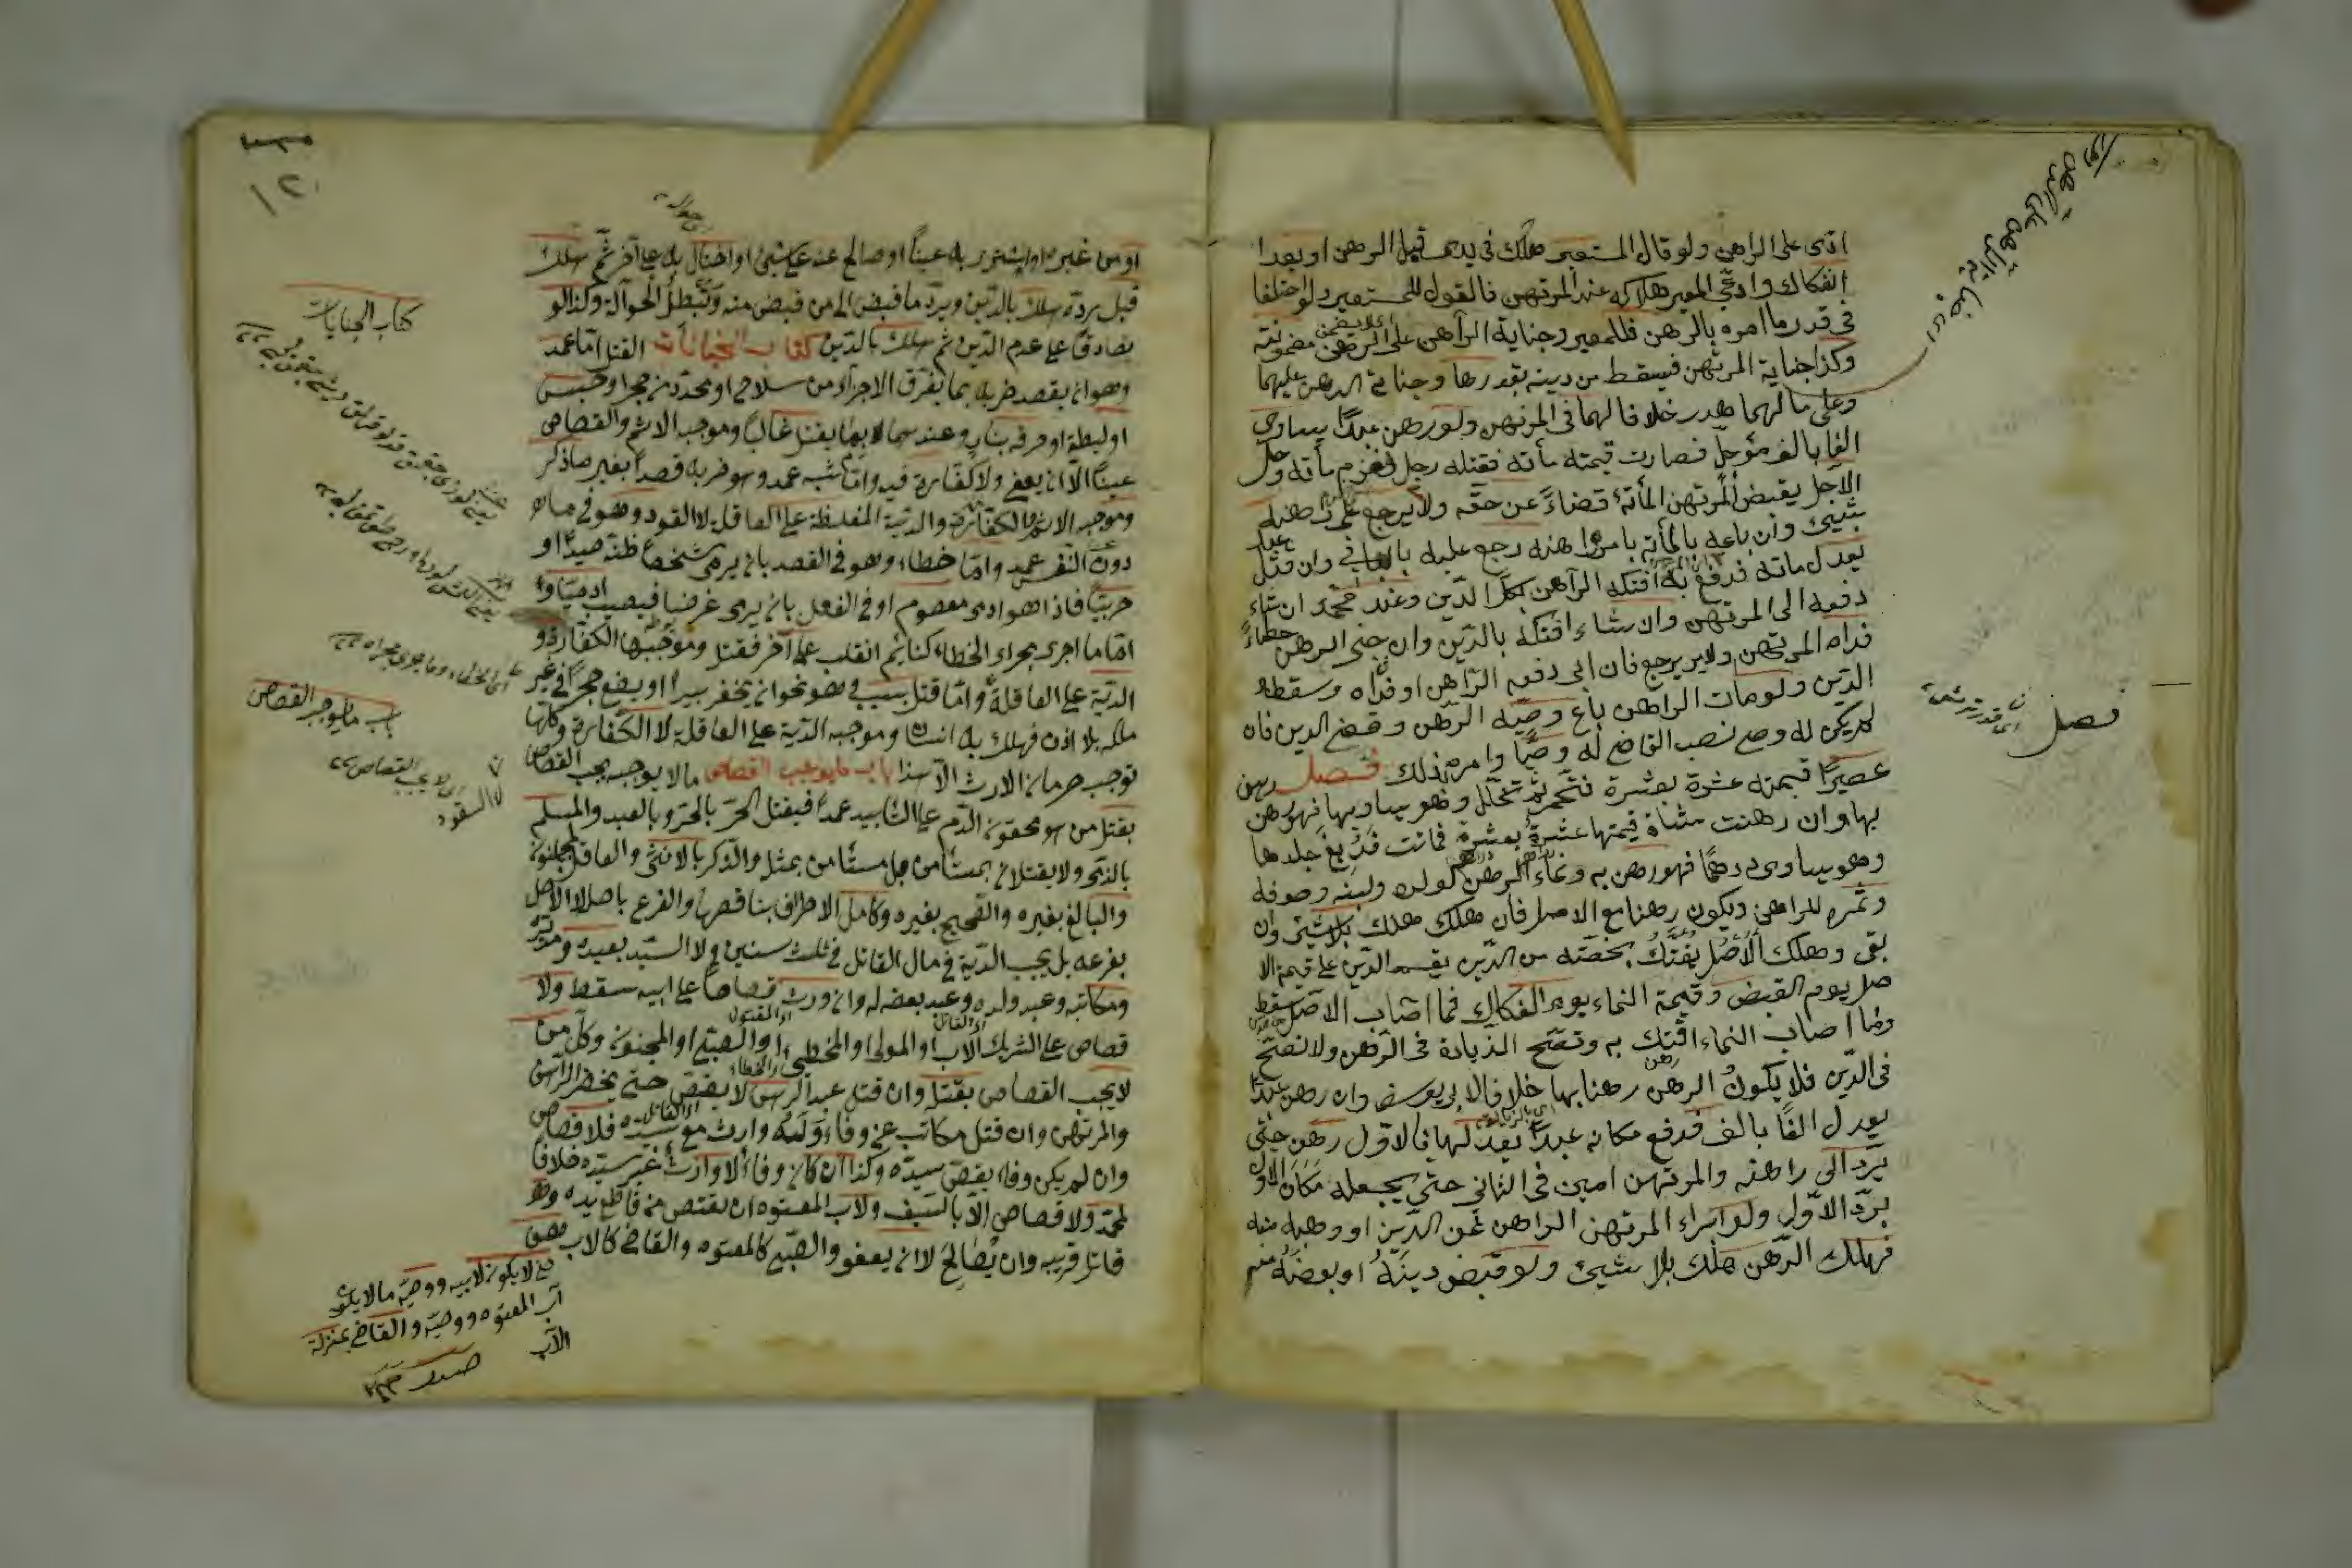 ادى على الراهن ولو قال المستعير هلك في يدى قبل الرهن او بعد
الفكاك وادعى المعير هلاكه عند المرتهن فالقول للمستعير ولو اختلفا
في قدر ما امره بالرهن فللمعير وجناية الراهن على الرهن مضمونة
وكذا جناية المرتهن فيسقط من دينه بقدرها وجناية الرهن عليهما
وعلى مالهما هدر خلافا لهما في المرتهن ولو رهن عبدًا يساوي
الفا بالف مؤجل فصارت قيمته مأته فقتله رجل فغرم مأته وحل
الاجل يقبض المرتهن المأتة قضاءً عن حقه ولا يرجع على راهنه
بشيئ وان باعه بالمأته بامر راهنه رجع عليه بالباقي وان قتله عبد
يعدل مائه فدفع به افتكه الراهن بكل الدين وعند محمد ان شاء
دفعه الى المرتهن وان شاء افتكه بالدين وان جنى الرهن خطاءً
فداه المرتهن ولا يرجع فان ابى دفعه الراهن او فداه وسقط
الدين ولو مات الراهن باع وصيه الرهن وقضى الدين فان
لم يكن له وصى نصب القاضى له وصيًا وامره بذلك فصل رهن
عصيرًا قيمته عشرة بعشرة فتخمر ثم تخلل وهو يساويها فهو رهن
بها وان رهنت شاة قيمتها عشرة بعشرة فماتت فدبغ جلدها
وهو يساوى درهمًا فهو رهن به ونماء الرهن كولده ولبنه وصوفه
وثمره للراهن ويكون رهنا مع الاصل فان هلك هلك بلا شيئ وان
بقى وهلك الاصل يفتك بحصته من الدين يقسم الدين على قيمة الا
صل يوم القبض وقيمة النماء يوم الفكاك فما اصاب الاصل سقط
وما اصاب النماء افتك به وتصح الزيادة في الرهن ولا تصح
في الدين فلا يكون الرهن رهنا بها خلافا لابي يوسف وان رهن عبدًا
يعدل الفًا بالف فدفع مكانه عبدًا يعدلها فالاول رهن حتى
يرد الى راهنه والمرتهن امين في الثاني حتى يجعله مكان الاول
برد الاول ولو ابراء المرتهن الراهن عن الدين او وهبه منه
فهلك الرهن هلك بلا شيئ ولو قبض دينه او بعضه منه
فصل
او من غيره او اشترى به عينًا او صالح عنه على شيئ او احتال به على آخر ثم هلك
قبل رده هلك بالدين ويرد ما قبض الى من قبض منه وتبطل الحوالة وكذا لو
تصادقا على عدم الدين ثم هلك بالدين كتاب الجنايات القتل اما عمد
وهو ان يقصد ضربه بما يفرق الاجزاء من سلاح او محدد من حجر او خشب
او ليطة او حرقه بنار وعندهما بما يقتل غالبًا وموجبه الاثم والقصاص
عينًا الا ان يعفى ولا كفارة فيه واما شبه عمد وهو ضربه قصدًا بغير ما ذكر
وموجبه الاثم والكفارة والدية المغلظة على العاقلة لا القود وهو فيما
دون النفس عمد واما خطاء وهو في القصد بان يرمى شخصا ظنه صيدًا او
حربيًا فاذا هو ادمى معصوم او في الفعل بان يرمى غرضا فيصيب ادميًا و
اما ما اجرى مجراء الخطاء كنائم انقلب على آخر فقتل وموجبها الكفارة و
الدية على العاقلة واما قتل بسبب وهو نحو ان يحفر بيرا او يضع حجرًا في غير
ملكه بلا اذن فهلك به انسان وموجبه الدية على العاقلة لا الكفارة وكلها
توجب حرمان الارث الا هذا باب ما يوجب القصاص وما لا يوجبه يجب القصاص
بقتل من هو محقون الدم على التابيد عمدًا فيقتل الحر بالحر وبالعبد والمسلم
بالذمى ولا يقتلان بمستأمن بل مستأمن بمثله والذكر بالانثى والعاقل بالمجنون
والبالغ بغيره والصحيح بغيره وكامل الاطراف بناقصها والفرع باصله لا الاصل
بفرعه بل يجب الدية في مال القاتل في ثلث سنين ولا السيد بعبده ومدبره
ومكاتبه وعبد ولده وعبد بعضه له وان ورث قصاصًا على ابيه سقط ولا
قصاص على شريك الاب او المولى او المخطئ او الصبي او المجنون وكل من
لا يجب القصاص بقتله وان قتل عبد الرهن لا يقتص حتى يحضر الراهن
والمرتهن وان قتل مكاتب عن وفاء وله وارث مع سيده فلا قصاص
وان لم يكن وفاء يقتص سيده وكذا ان كان وفاء ولا وارث غير سيده خلافا
لمحمد ولا قصاص الا بالسيف ولاب المعتوه ان يقتص من قاطع يده و
قاتل قريبه وان يصالح لا ان يعفو والصبي كالمعتوه والقاضى كالاب
كتاب الجنايات
باب ما يوجب القصاص
اى لا يجب القصاص
الا بالسيف
اب المعتوه ووصيه والقاضى بمنزلة
الاب